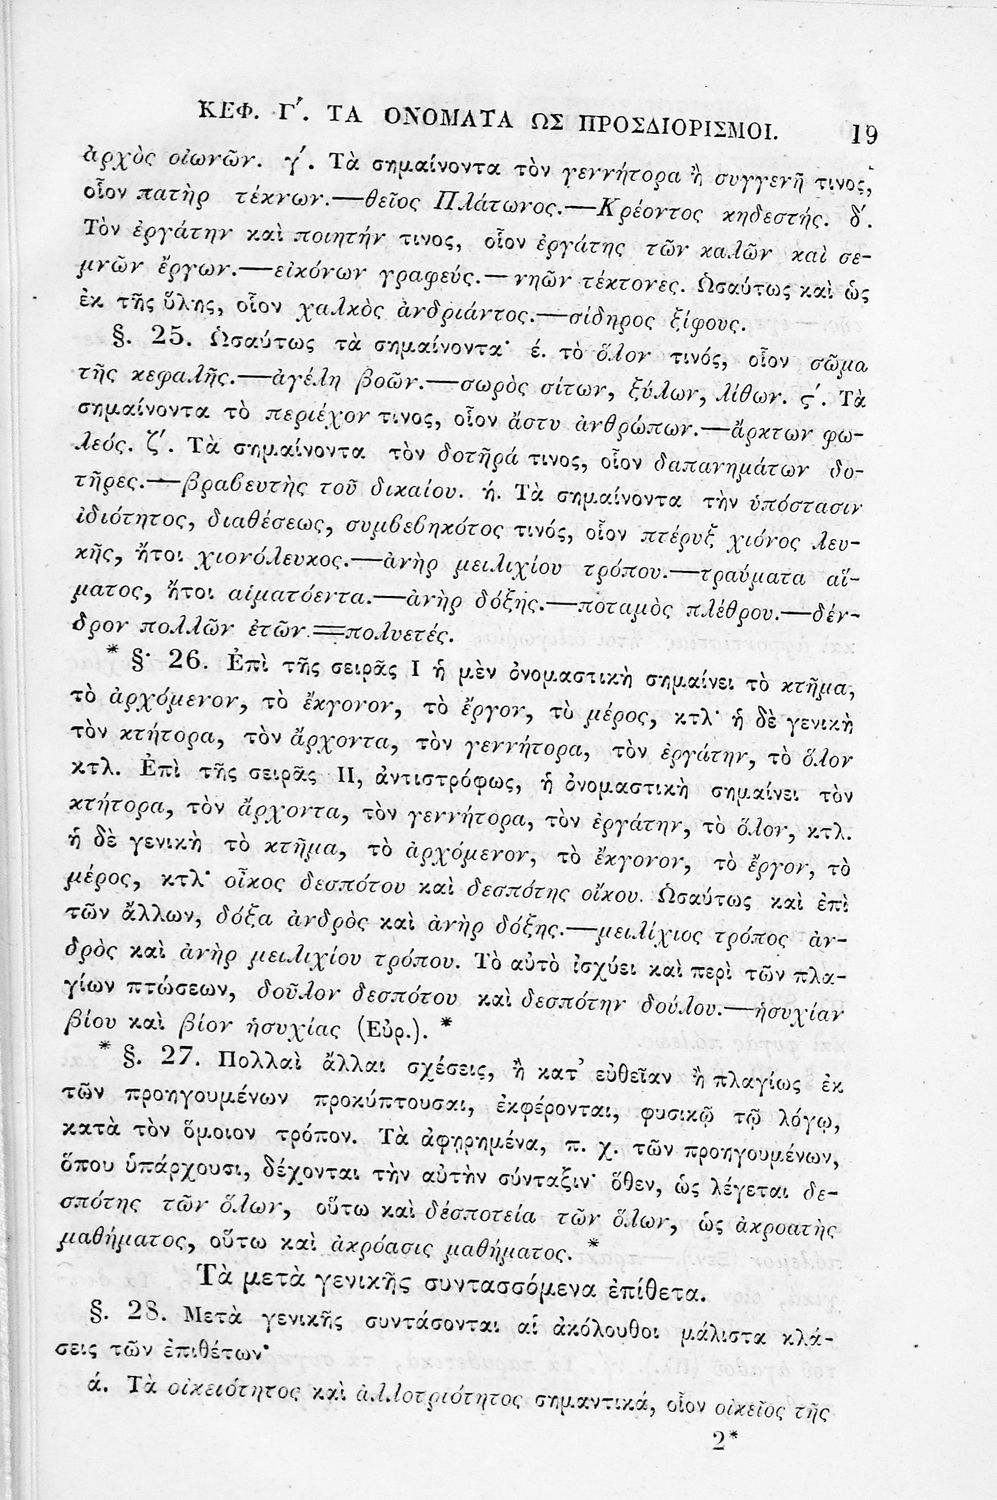 ΚΕΦ. Γʹ. ΤΑ ΟΝΟΜΑΤΑ ΩΣ ΠΡΟΣΔΙΟΡΙΣΜΟΙ. 19
ἀρχὸς οἰωνῶν. γʹ. Τὰ σημαίνοντα τὸν γεννήτορα ἢ συγγενῆ τινος,
οἷον πατὴρ τέκνων.—θεῖος Πλάτωνος.—Κρέοντος κηδεστής. δʹ.
Τὸν ἐργάτην καὶ ποιητήν τινος, οἷον ἐργάτης τῶν καλῶν καὶ σε-
μνῶν ἔργων.—εἰκόνων γραφεύς.—νηῶν τέκτονες. Ὡσαύτως καὶ ὡς
ἐκ τῆς ὕλης, οἷον χαλκὸς ἀνδριάντος.—σίδηρος ξίφους.
§. 25. Ὡσαύτως τὰ σημαίνοντα· έ. τὸ ὅλον τινός, οἷον σῶμα
τῆς κεφαλῆς.—ἀγέλη βοῶν.—σωρὸς σίτων, ξύλων, λίθων. ϛʹ. Τὰ
σημαίνοντα τὸ περιέχον τινος, οἷον ἄστυ ἀνθρώπων.—ἄρκτων φω-
λεός. ζʹ. Τὰ σημαίνοντα τὸν δοτῆρά τινος, οἷον δαπανημάτων δο-
τῆρες.—βραβευτὴς τοῦ δικαίου. ή. Τὰ σημαίνοντα τὴν ὑπόστασιν
ἰδιότητος, διαθέσεως, συμβεβηκότος τινός, οἷον πτέρυξ χιόνος λευ-
κῆς, ἤτοι χιονόλευκος.—ἀνὴρ μειλιχίου τρόπου.—τραύματα αἵ-
ματος, ἤτοι αἱματόεντα.—ἀνὴρ δόξης.—ποταμὸς πλέθρου.—δέν-
δρον πολλῶν ἐτῶν=πολυετές.
* §· 26. Ἐπὶ τῆς σειρᾶς Ι ἡ μὲν ὀνομαστικὴ σημαίνει τὸ κτῆμα,
τὸ ἀρχόμενον, τὸ ἔκγονον, τὸ ἔργον, τὸ μέρος, κτλ· ἡ δὲ γενικὴ
τὸν κτήτορα, τὸν ἄρχοντα, τὸν γεννήτορα, τὸν ἐργάτην, τὸ ὅλον
κτλ. Ἐπὶ τῆς σειρᾶς ΙΙ, ἀντιστρόφως, ἡ ὀνομαστικὴ σημαίνει τὸν
κτήτορα, τὸν ἄρχοντα, τὸν γεννήτορα, τὸν ἐργάτην, τὸ ὅλον, κτλ.
ἡ δὲ γενικὴ τὸ κτῆμα, τὸ ἀρχόμενον, τὸ ἔκγονον, τὸ ἔργον, τὸ
μέρος, κτλ· οἶκος δεσπότου καὶ δεσπότης οἴκου. Ὡσαύτως καὶ ἐπὶ
τῶν ἄλλων, δόξα ἀνδρὸς καὶ ἀνὴρ δόξης.—μειλίχιος τρόπος ἀν-
δρὸς καὶ ἀνὴρ μειλιχίου τρόπου. Τὸ αὐτὸ ἰσχύει καὶ περὶ τῶν πλα-
γίων πτώσεων, δοῦλον δεσπότου καὶ δεσπότην δούλου.—ἡσυχίαν
βίου καὶ βίον ἡσυχίας (Εὐρ.). *
* §. 27. Πολλαὶ ἄλλαι σχέσεις, ἢ κατʼ εὐθεῖαν ἢ πλαγίως ἐκ
τῶν προηγουμένων προκύπτουσαι, ἐκφέρονται, φυσικῷ τῷ λόγῳ,
κατὰ τὸν ὅμοιον τρόπον. Τὰ ἀφηρημένα, π. χ. τῶν προηγουμένων,
ὅπου ὑπάρχουσι, δέχονται τὴν αὐτὴν σύνταξιν· ὅθεν, ὡς λέγεται δε-
σπότης τῶν ὅλων, οὕτω καὶ δέσποτεία τῶν ὅλων, ὡς ἀκροατὴς
μαθήματος, οὕτω καὶ ἀκρόασις μαθήματος. *
Τὰ μετὰ γενικῆς συντασσόμενα ἐπίθετα.
§. 28. Μετὰ γενικῆς συντάσονται αἱ ἀκόλουθοι μάλιστα κλά-
σεις τῶν ἐπιθέτων·
ά. Τὰ οἰκειότητος καὶ ἀλλοτριότητος σημαντικά, οἷον οἰκεῖος τῆς
2*